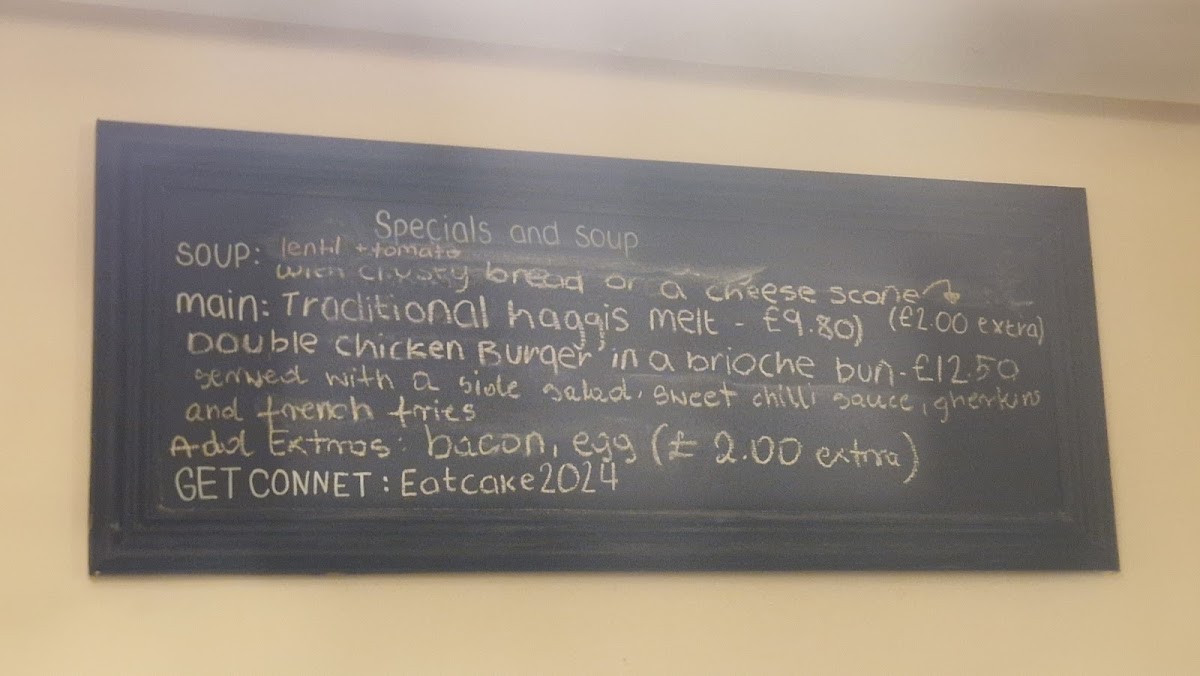 Specials and soup
SOUP: lentil + tomato
with crusty bread or a cheese scone
main: Traditional haggis melt - £9.80) (£2.00 extra)
Double chicken Burger in a brioche bun - £12.50
served with a side salad, sweet chilli sauce, gherkins
and french fries
Add Extras: bacon, egg (£ 2.00 extra)
GET CONNET : Eatcake2024